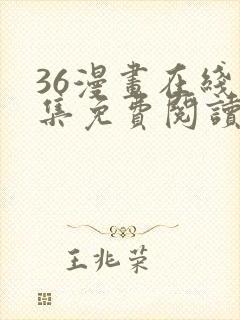 36漫畫在綫
集免費閱讀
王兆荣